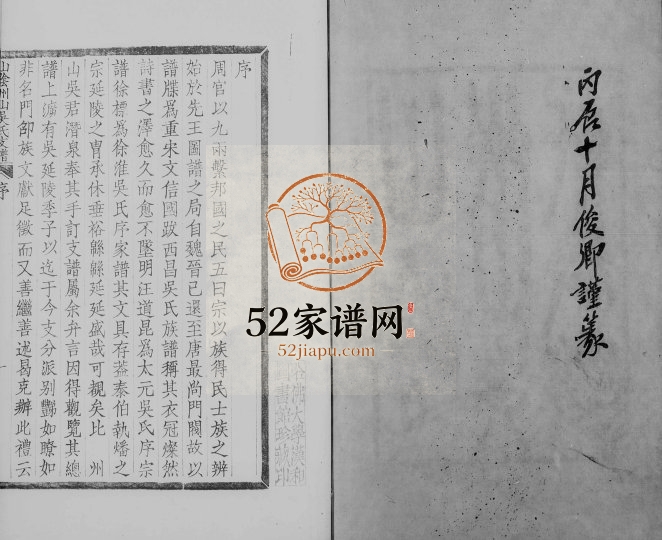 丙辰十月俊卿謹篆
序
周官以九兩繫邦國之民五曰宗以族得民士族之辨
始於先王圖譜之局自魏晉已還至唐最尚門閥故以
譜牒爲重宋文信國跋西昌吳氏族譜稱其衣冠燦然
詩書之澤愈久而愈不墜明汪道昆爲太元吳氏序宗
譜徐標爲徐淮吳氏序家譜其文具存蓋泰伯執燔之
宗延陵之胄承休垂裕緜緜延延盛哉可覩矣比 州
山吳君潛泉奉其手訂支譜屬余弁言因得觀覽其總
譜上溯有吳延陵季子以迄于今支分派别酈如瞭如
非名門卲族文獻足徵而又善繼善述曷克辦此禮云
山陰州山吳氏支譜 序
52家谱网
52jiapu.com